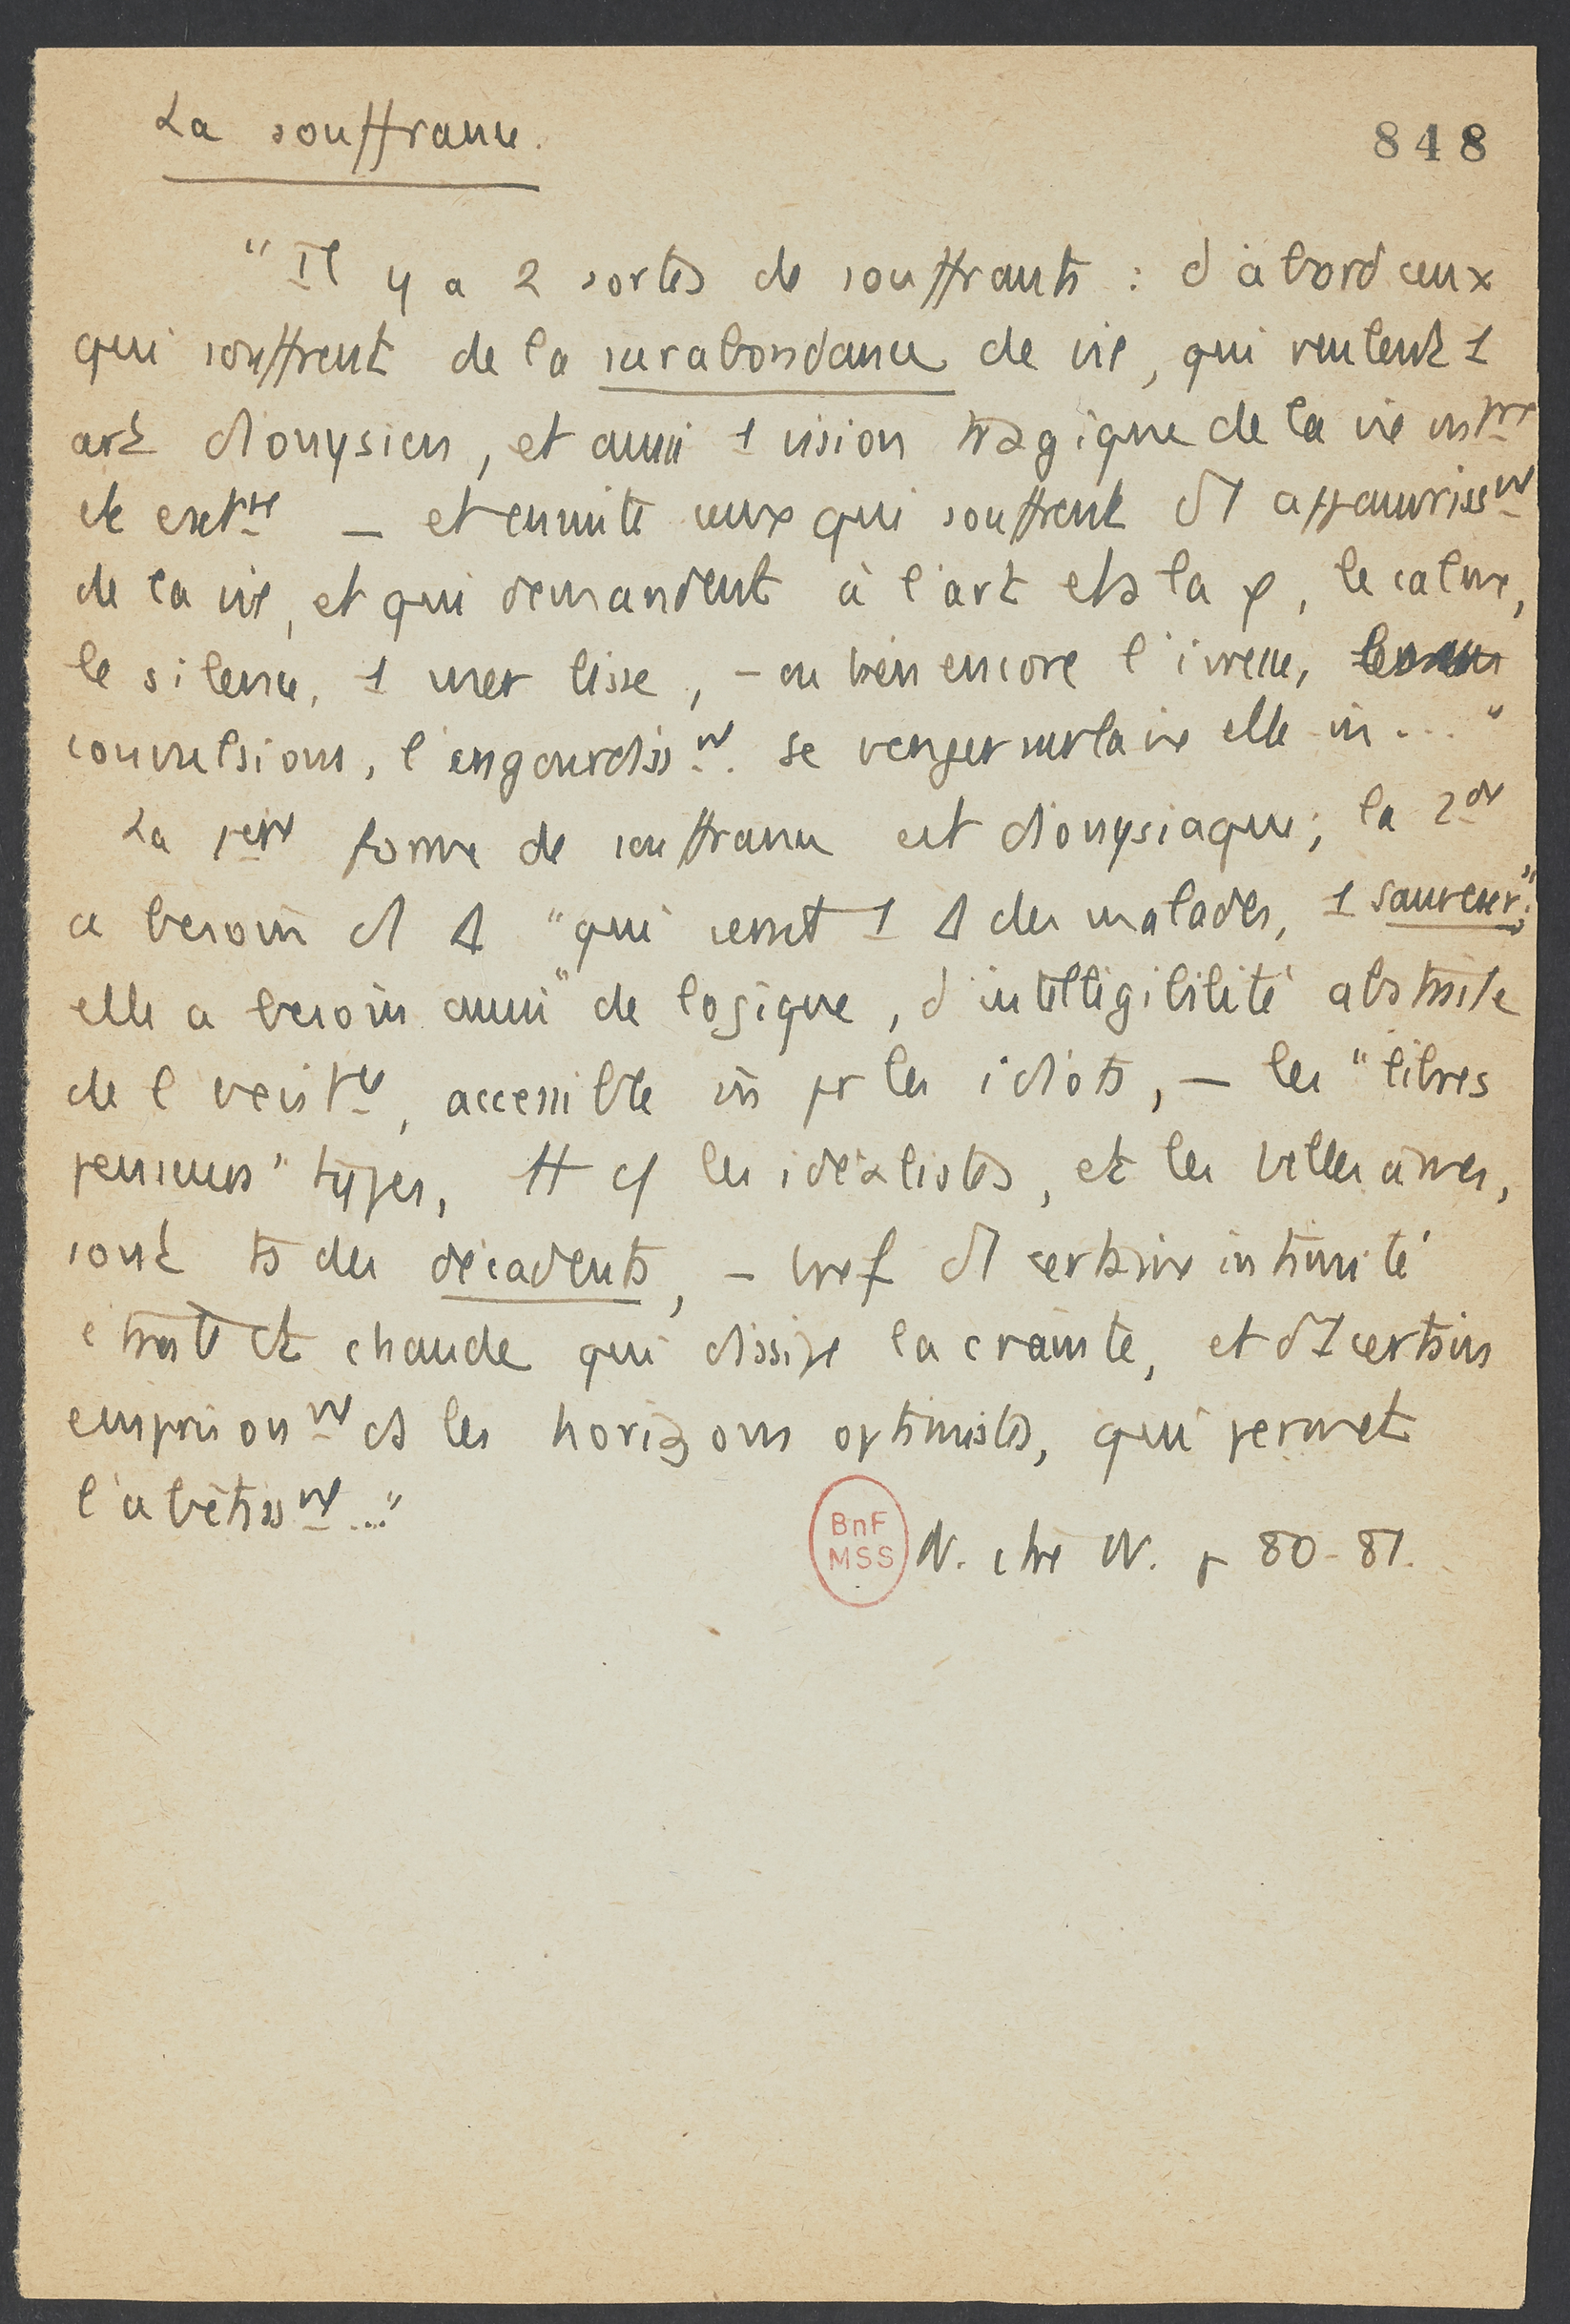 La souffrance.
848
"Il y a 2 sortes de souffrants : d'abord ceux
qui souffrent de la surabondance de vie, qui veulent 1
art dionysien, et aussi 1 vision tragique de la vie intre
et extre — et ensuite ceux qui souffrent d'1 appauvrisst
de la vie, et qui demandent à l'art et à la φ, le calme,
le silence, 1 mer lisse, - ou bien encore l'ivresse, les
convulsions, l'engourdisst. Se venger sur la vie elle-m̂..."
La 1ère forme de souffrance est dionysiaque; la 2de
a besoin d'1 Δ "qui serait 1 Δ des malades, 1 sauveur";
elle a besoin aussi "de logique, d'intelligibilité abstraite
de l'existce, accessible m̂ pr les idiots, — les "libres
penseurs" types, tt c/ les idéalistes, et les belles âmes,
sont ts des décadents, - bref d'1 certaine intimité
étroite et chaude qui dissipe la crainte, et d'1 certain
emprisont ds les horizons optimistes, qui permet
l'abêtisst..."
BnF
MSS
N. ctre W. p 80-81.